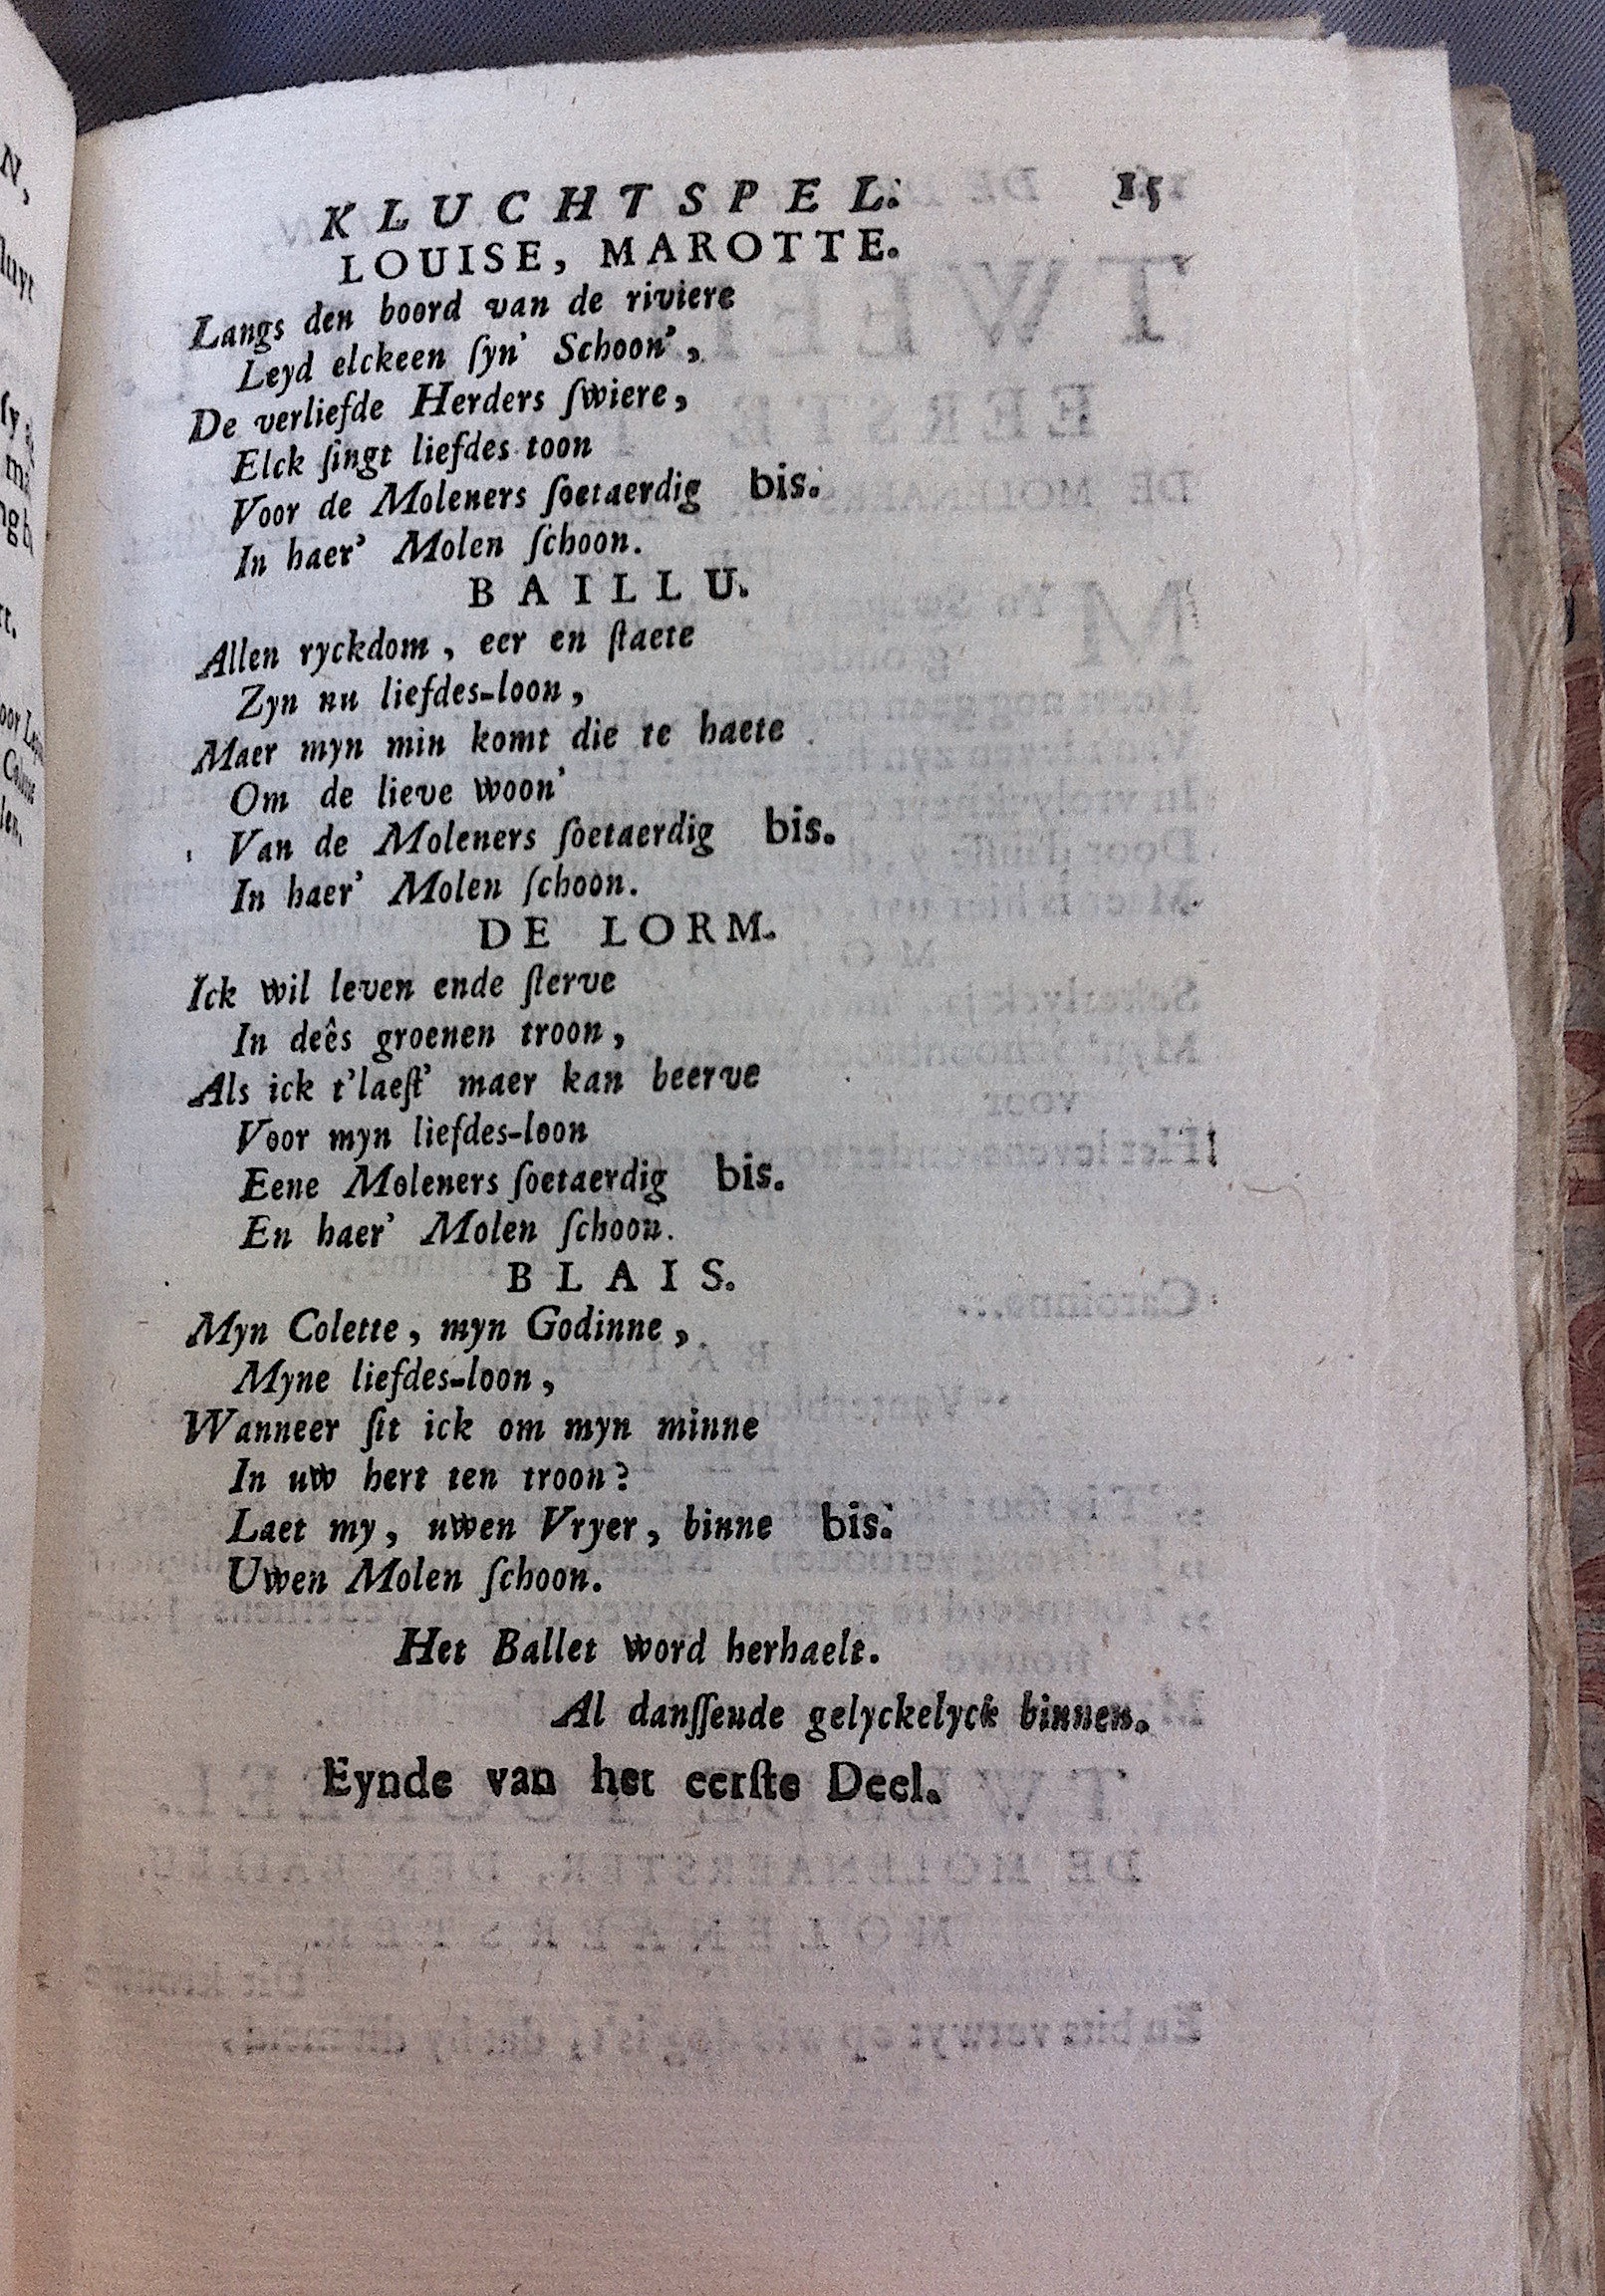 KLUCHTSPEL. 15
LOUISE, MAROTTE.
Langs den boord van de riviere
Leyd elckeen ſyn' Schoon',
De verliefde Herders ſwiere,
Elck ſingt liefdes toon
Voor de Moleners ſoetaerdig bis.
In haer' Molen ſchoon.
BAILLU.
Allen ryckdom, eer en ſtaete
Zyn nu liefdes-loon,
Maer myn min komt die te haete
Om de lieve woon'
Van de Moleners ſoetaerdig bis.
In haer' Molen ſchoon.
DE LORM.
Ick wil leven ende ſterve
In deês groenen troon,
Als ick t'laeſt' maer kan beerve
Voor myn liefdes-loon
Eene Moleners ſoetaerdig bis.
En haer' Molen ſchoon.
BLAIS.
Myn Colette, myn Godinne,
Myne liefdes-loon,
Wanneer ſit ick om myn minne
In uw hert ten troon?
Laet my, uwen Vryer, binne bis.
Uwen Molen ſchoon.
Het Ballet word herhaelt.
Al danſſende gelyckelyck binnen.
Eynde van het eerſte Deel.